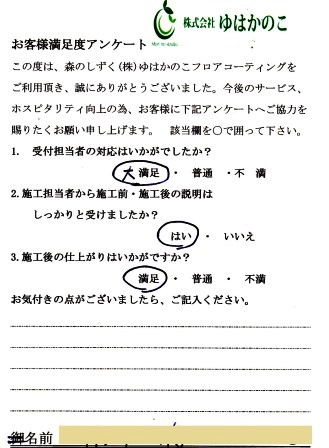 株式会社 ゆはかのこ
お客様満足度アンケート
この度は、森のしずく(株)ゆはかのこフロアコーティングを
ご利用頂き、誠にありがとうございました。今後のサービス、
ホスピタリティ向上の為、お客様に下記アンケートへご協力を
賜りたくお願い申し上げます。 該当欄を〇で囲って下さい。
1. 受付担当者の対応はいかがでしたか?
大 満足 ・ 普通 ・不 満
2.施工担当者から施工前・施工後の説明は
しっかりと受けましたか?
はい ・ いいえ
3.施工後の仕上がりはいかがですか?
満足 ・ 普通 ・ 不満
お気付きの点がございましたら、ご記入ください。
御名前